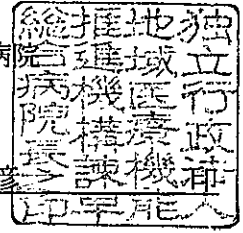 病院
彦
独立行政法人
地域医療機能
推進機構諫早
総合病院長之印